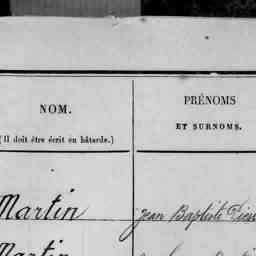 NOM.
(Il doit être écrit en bâtarde.)
PRÉNOMS
ET SURNOMS.
Martin
Jean Baptiste
Martin